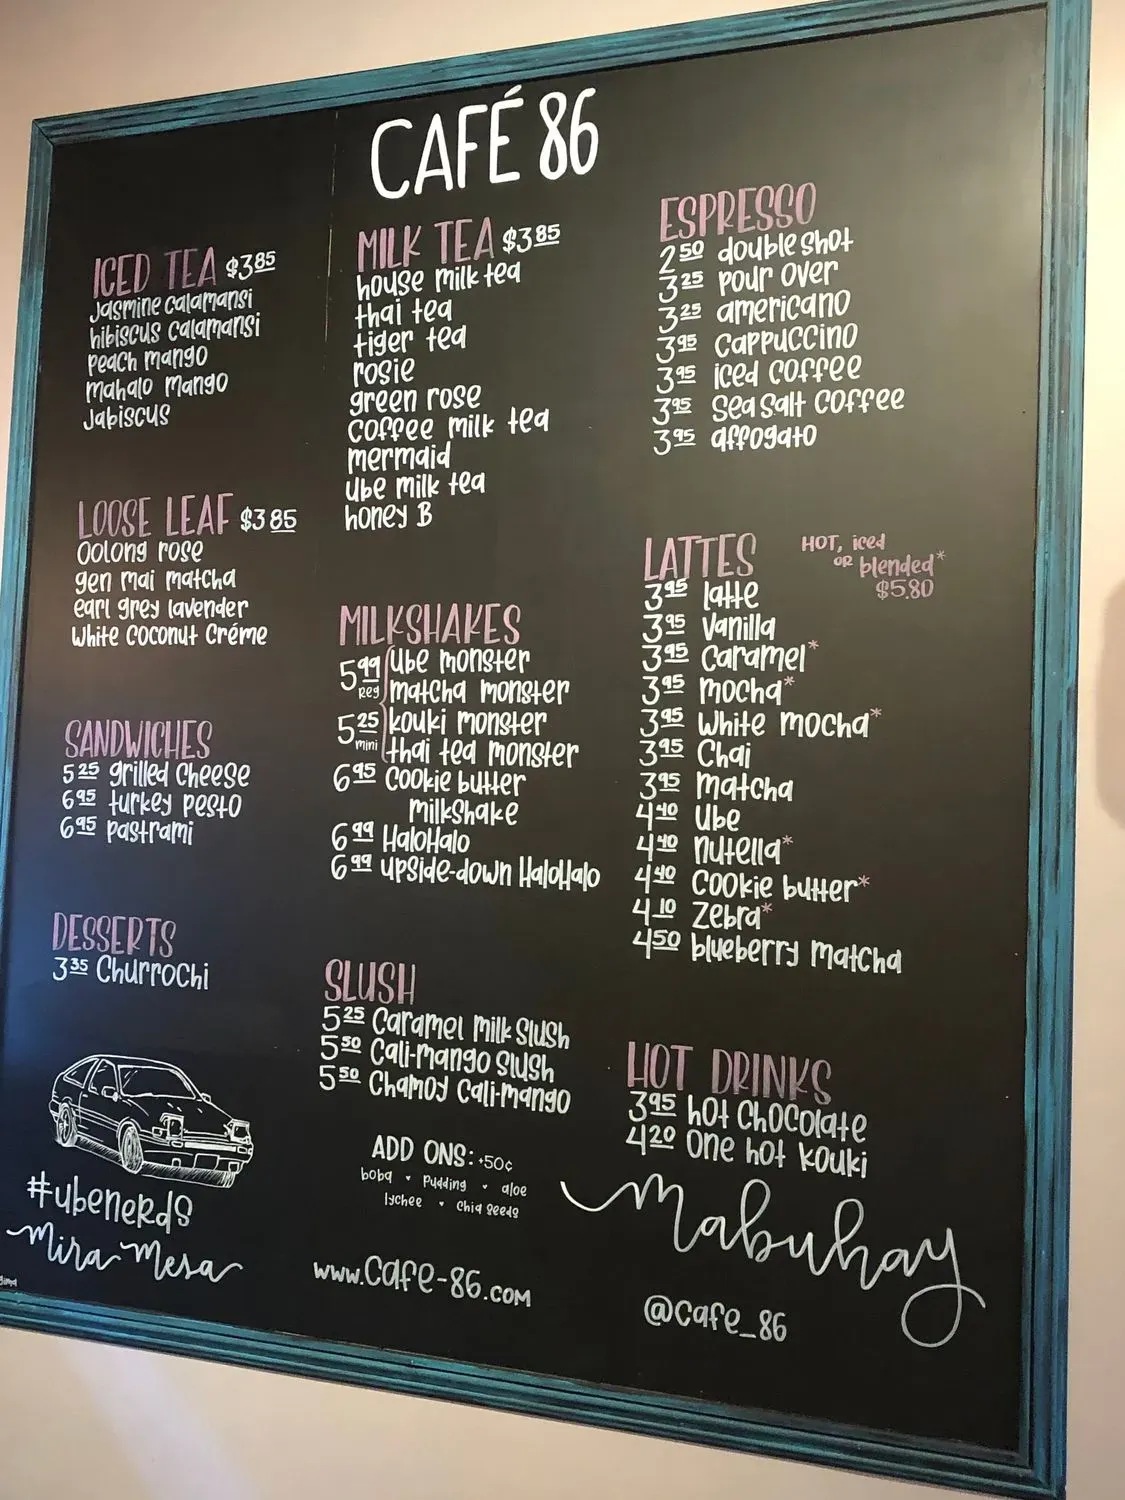 CAFÉ 86
ICED TEA $3.85
Jasmine calamansi
hibiscus calamansi
peach mango
mahalo mango
Jabiscus
LOOSE LEAF $3.85
Oolong rose
gen mai matcha
earl grey lavender
White coconut Créme
SANDWICHES
5.25 grilled cheese
6.95 turkey pesto
6.95 pastrami
DESSERTS
3.35 Churrochi
#ubenerds
Mira Mesa
MILK TEA $3.85
house milk tea
thai tea
tiger tea
rosie
green rose
coffee milk tea
mermaid
ube milk tea
honey B
MILKSHAKES
5.99 Reg ube monster
matcha monster
5.25 mini kouki monster
thai tea monster
6.95 Cookie butter
milkshake
6.99 HaloHalo
6.99 upside-down HaloHalo
SLUSH
5.25 Caramel milk Slush
5.50 Cali-mango Slush
5.50 Chamoy Cali-mango
ADD ONS: +50¢
boba • pudding • aloe
lychee • chia seeds
www.cafe-86.com
ESPRESSO
2.50 double shot
3.25 pour over
3.25 americano
3.95 cappuccino
3.95 iced coffee
3.95 Sea Salt Coffee
3.95 affogato
LATTES HOT, iced
OR blended*
$5.80
3.95 latte
3.95 Vanilla
3.95 Caramel*
3.95 mocha*
3.95 White mocha*
3.95 Chai
3.95 matcha
4.40 ube
4.40 nutella*
4.40 Cookie butter*
4.10 Zebra*
4.50 blueberry matcha
HOT DRINKS
3.95 hot chocolate
4.20 One hot kouki
Mabuhay
@cafe_86